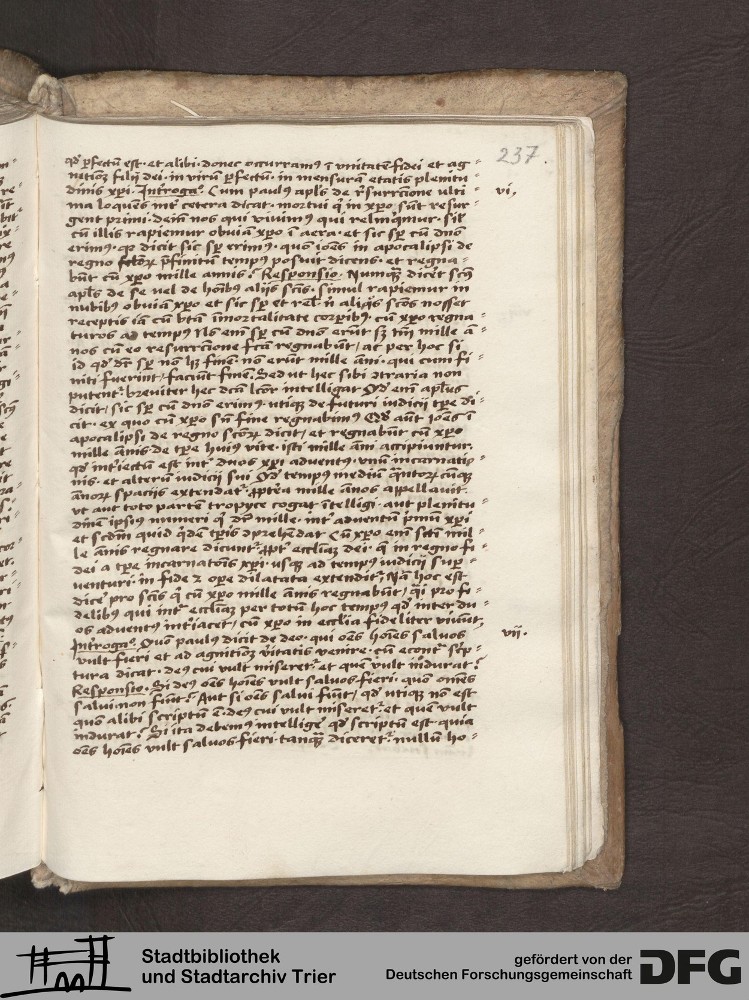 237.
qd ꝑfectū est · et alibi · donec occurramꝰ ī vnitatē fidei et ag⸗
nitiōꝫ filij dei · in virū ꝑfectū · in mensurā etatis plenitu⸗
dinis xpi · Introga⁰ · Cum paulꝰ apls de rsurrcione ulti⸗ vi,
ma loquens int̄ cetera dicat · mortui q̄ in xpo sūt resur⸗
gent primi · dein̄ nos qui viuimꝰ qui relinqmur · sil̄
cū illis rapiemur obuiā xpo ī aera · et sic sꝑ cū dno
erimꝰ · qͦ dicit sic sꝑ erimꝰ · quō ioēs in apocalipsi de
regno p̄finitū tempꝰ posuit dicens · et regna⸗
būt cū xpo mille annis ? Responsio · Nunqͣꝫ dicēt scꝰ
apls de se vel de hoībꝰ alijs scīs · simul rapiemur in
nubibꝰ obuiā xpo et sic sꝑ et rel̄ · n̄ aliqͦs scōs nosset
receptis iā cū btā īmortalitate corꝑibꝰ · cū xpo regna⸗
turos ad tempꝰ Nō em̄ sꝑ cū dno erūt sꝫ tm̄ mille ā⸗
nos cū eo resurrcione fcā regnabūt / ac per hoc si
id qd dr̄ sꝑ nō hꝫ finē · nō erūt mille āni · qui cum fi⸗
niti fuerint / faciūt finē · Sed ut hec sibi ɔtraria non
putent᷑ · breuiter hec dcā lcōr intelligat Qd em̄ aplus
dicit / sic sꝑ cū dno erimꝰ · utiqꝫ de futuri iudicij tꝑe di⸗
cit · ex quo cū xpo sn̄ fine regnabimꝰ Qd aūt ioēs ī
apocalipsi de regno scōꝝ dicit / et regnabūt cū xpo
mille ānis de tꝑe huiꝰ vite · isti mille āni accipiuntur ·
qd int̄iectū est int̄ duos xpi aduentꝰ · vnū incarnatio⸗
nis · et alterū iudicij sui Qd tempꝰ mediū qͣntoꝝcūqꝫ
ānoꝝ spacijs extendat᷑ · ꝓpt̄ea mille ānos appellauit ·
vt aut toto partē tropyce cogat ītelligi · aut plenitu⸗
dinē ipsiꝰ numeri qͥ dr̄ mille · int̄ aduentū pͥmū xpi
et scdm̄ quid qͥdē tꝑis ɔprehēdat Cū xpo em̄ scīm̄ mil⸗
le ānis regnare dicunt᷑ ꝓpt̄ eccliaꝫ dei · q̄ in regno fi⸗
dei a tꝑe incarnatoīs xpi · usqꝫ ad tempꝰ iudicij suꝑ⸗
venturi · in fide ⁊ oꝑe dilatata extendit᷑ · Nā hoc est
dicē pro scīs qͥ cū xpo mille ānis regnabūt / qͣi pro fi⸗
delibꝰ qui int̄ eccliaꝫ per totū hoc tempꝰ qd inter du⸗
os aduentꝰ int̄iacet / cū xpo in ecclia fideliter viuūt
Introga⁰ · Quō paulꝰ dicit de deo · qui oēs hoīes saluos vij ·
vult fieri et ad agnitiōꝫ v̄itatis venire · cū econt᷑ sc̄p⸗
tura dicat · deꝰ cui vult miseret᷑ et quē vult indurat ?
Responsio · Si deꝰ oēs hoīes vult saluos fieri · quō omēs
salui non fiūt ? Aut si oēs salui fiūt / qd utiqꝫ nō est
quō alibi scriptū ē · deꝰ cui vult miseret᷑ et quē vult
indurat ? Si ita debemꝰ intelligē qd scriptū est quia
oēs hoīes vult saluos fieri · tanqͣꝫ diceret᷑ nullū ho⸗
Stadtbibliothek
und Stadtarchiv Trier
gefördert von der
Deutschen Forschungsgemeinschaft
DFG